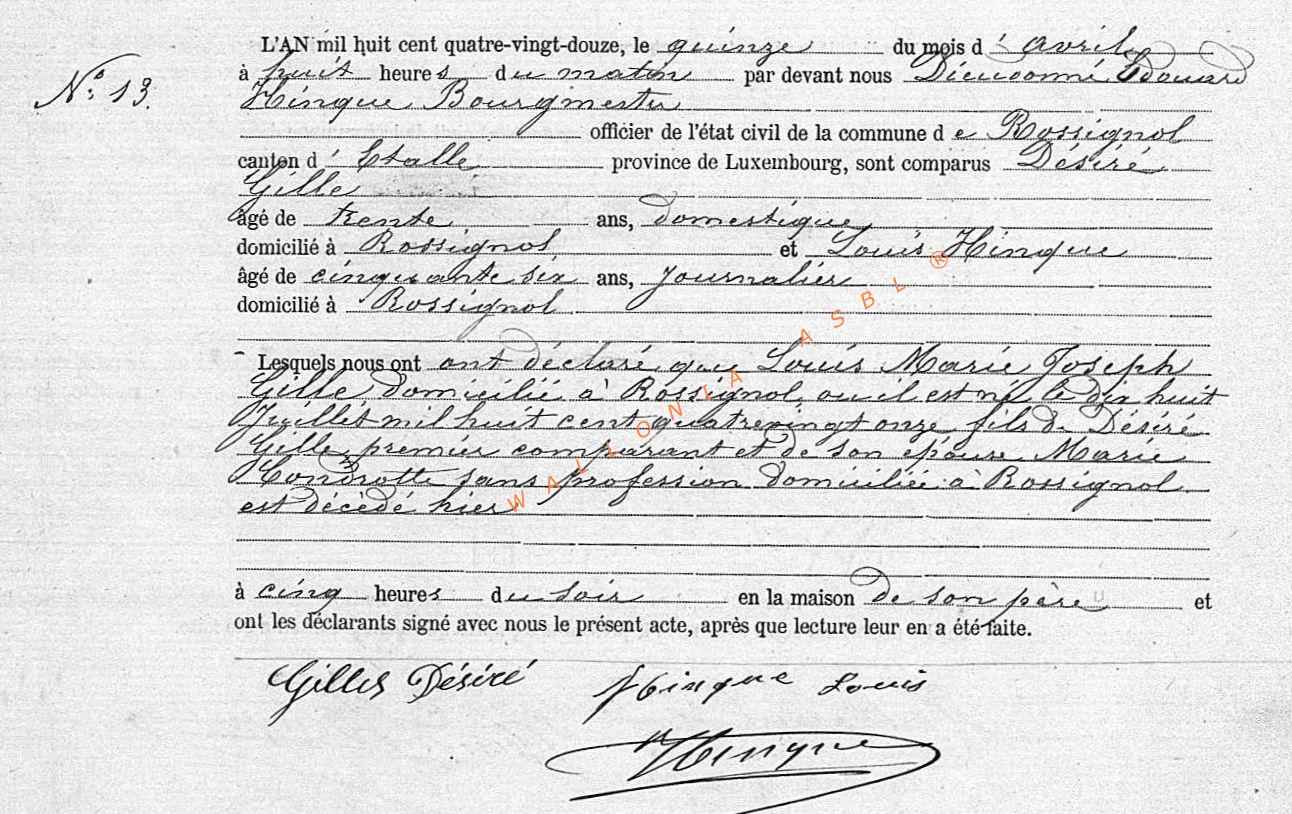 L'AN mil huit cent quatre-vingt-douze, le quinze du mois d' avril
N° 13.
à huit heures du matin par devant nous Dieudonné Edouard
Hinque Bourgmestre
officier de l'état civil de la commune de Rossignol
canton d' Etalle province de Luxembourg, sont comparus Désiré
Gille
âgé de trente ans, domestique
domicilié à Rossignol et Louis Hinque
âgé de cinquante six ans, journalier
domicilié à Rossignol
Lesquels nous ont ont déclaré que Louis Marie Joseph
Gille domicilié à Rossignol, ou il est né le dix huit
Juillet mil huit cent quatrevingt onze fils de Désiré
Gille premier comparant et de son épouse Marie
Hondrotte sans profession domiciliée à Rossignol
est décédé hier
à cinq heures du soir en la maison de son père et
ont les déclarants signé avec nous le présent acte, après que lecture leur en a été faite.
Gilles Désiré Hinque Louis
Hinque
WALLONIA ASBL ®